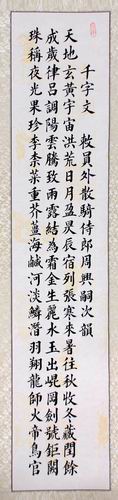 千字文 敕員外散騎侍郎周興嗣次韻
天地玄黃宇宙洪荒日月盈昃辰宿列張寒來暑往秋收冬藏閏餘
成歲律呂調陽雲騰致雨露結為霜金生麗水玉出崐岡劍號鉅闕
珠稱夜光果珍李柰菜重芥薑海鹹河淡鱗潛羽翔龍師火帝鳥官